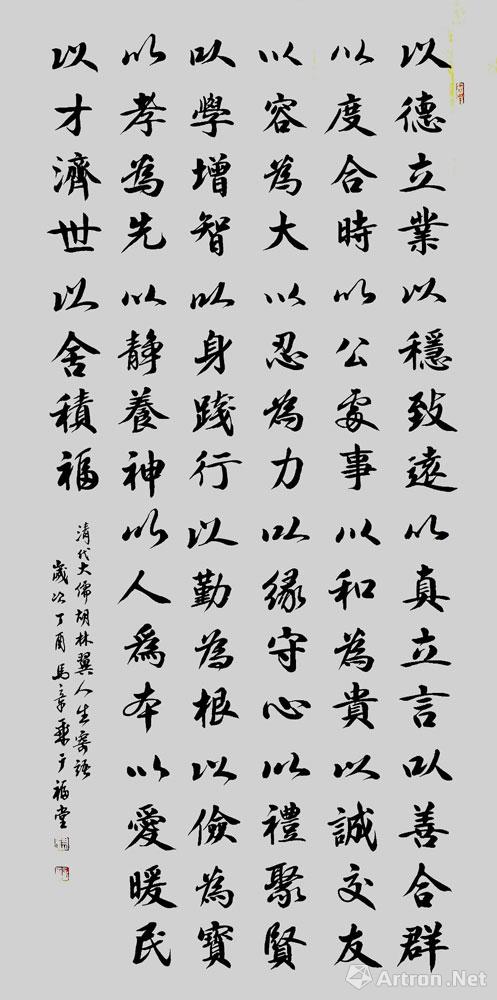 以德立業以穩致遠以真立言以善合群
以度合時以公處事以和為貴以誠交友
以容為大以忍為力以緣守心以禮聚賢
以學增智以身踐行以勤為根以儉為寶
以孝為先以靜養神以人為本以愛暖民
以才濟世以舍積福
清代大儒胡林翼人生寄語
歲次丁酉馬章乘于福堂
Artron.Net